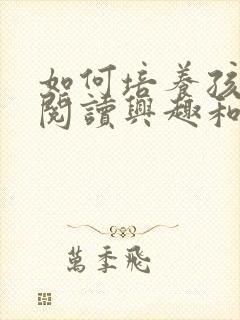 如何培養孩
閱讀興趣和
萬季飛